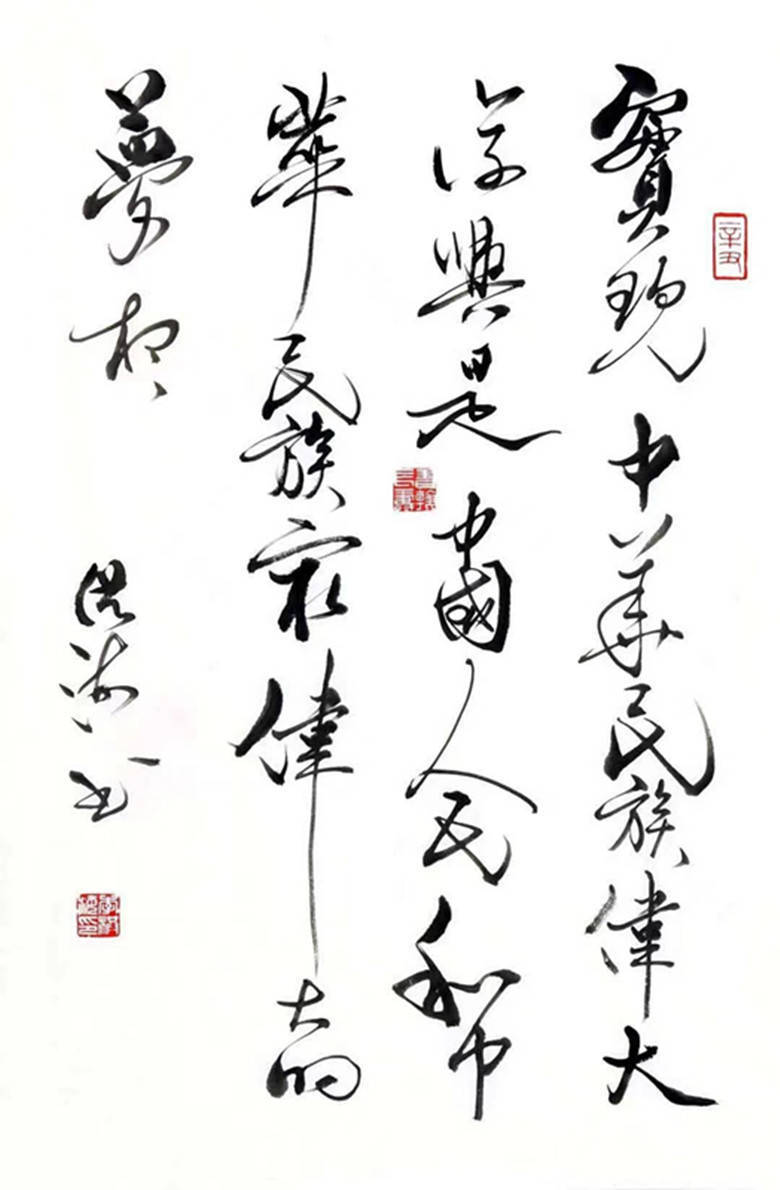 辛丑
實現中華民族偉大
復興是中國人民和中
華民族最偉大的
夢想
书